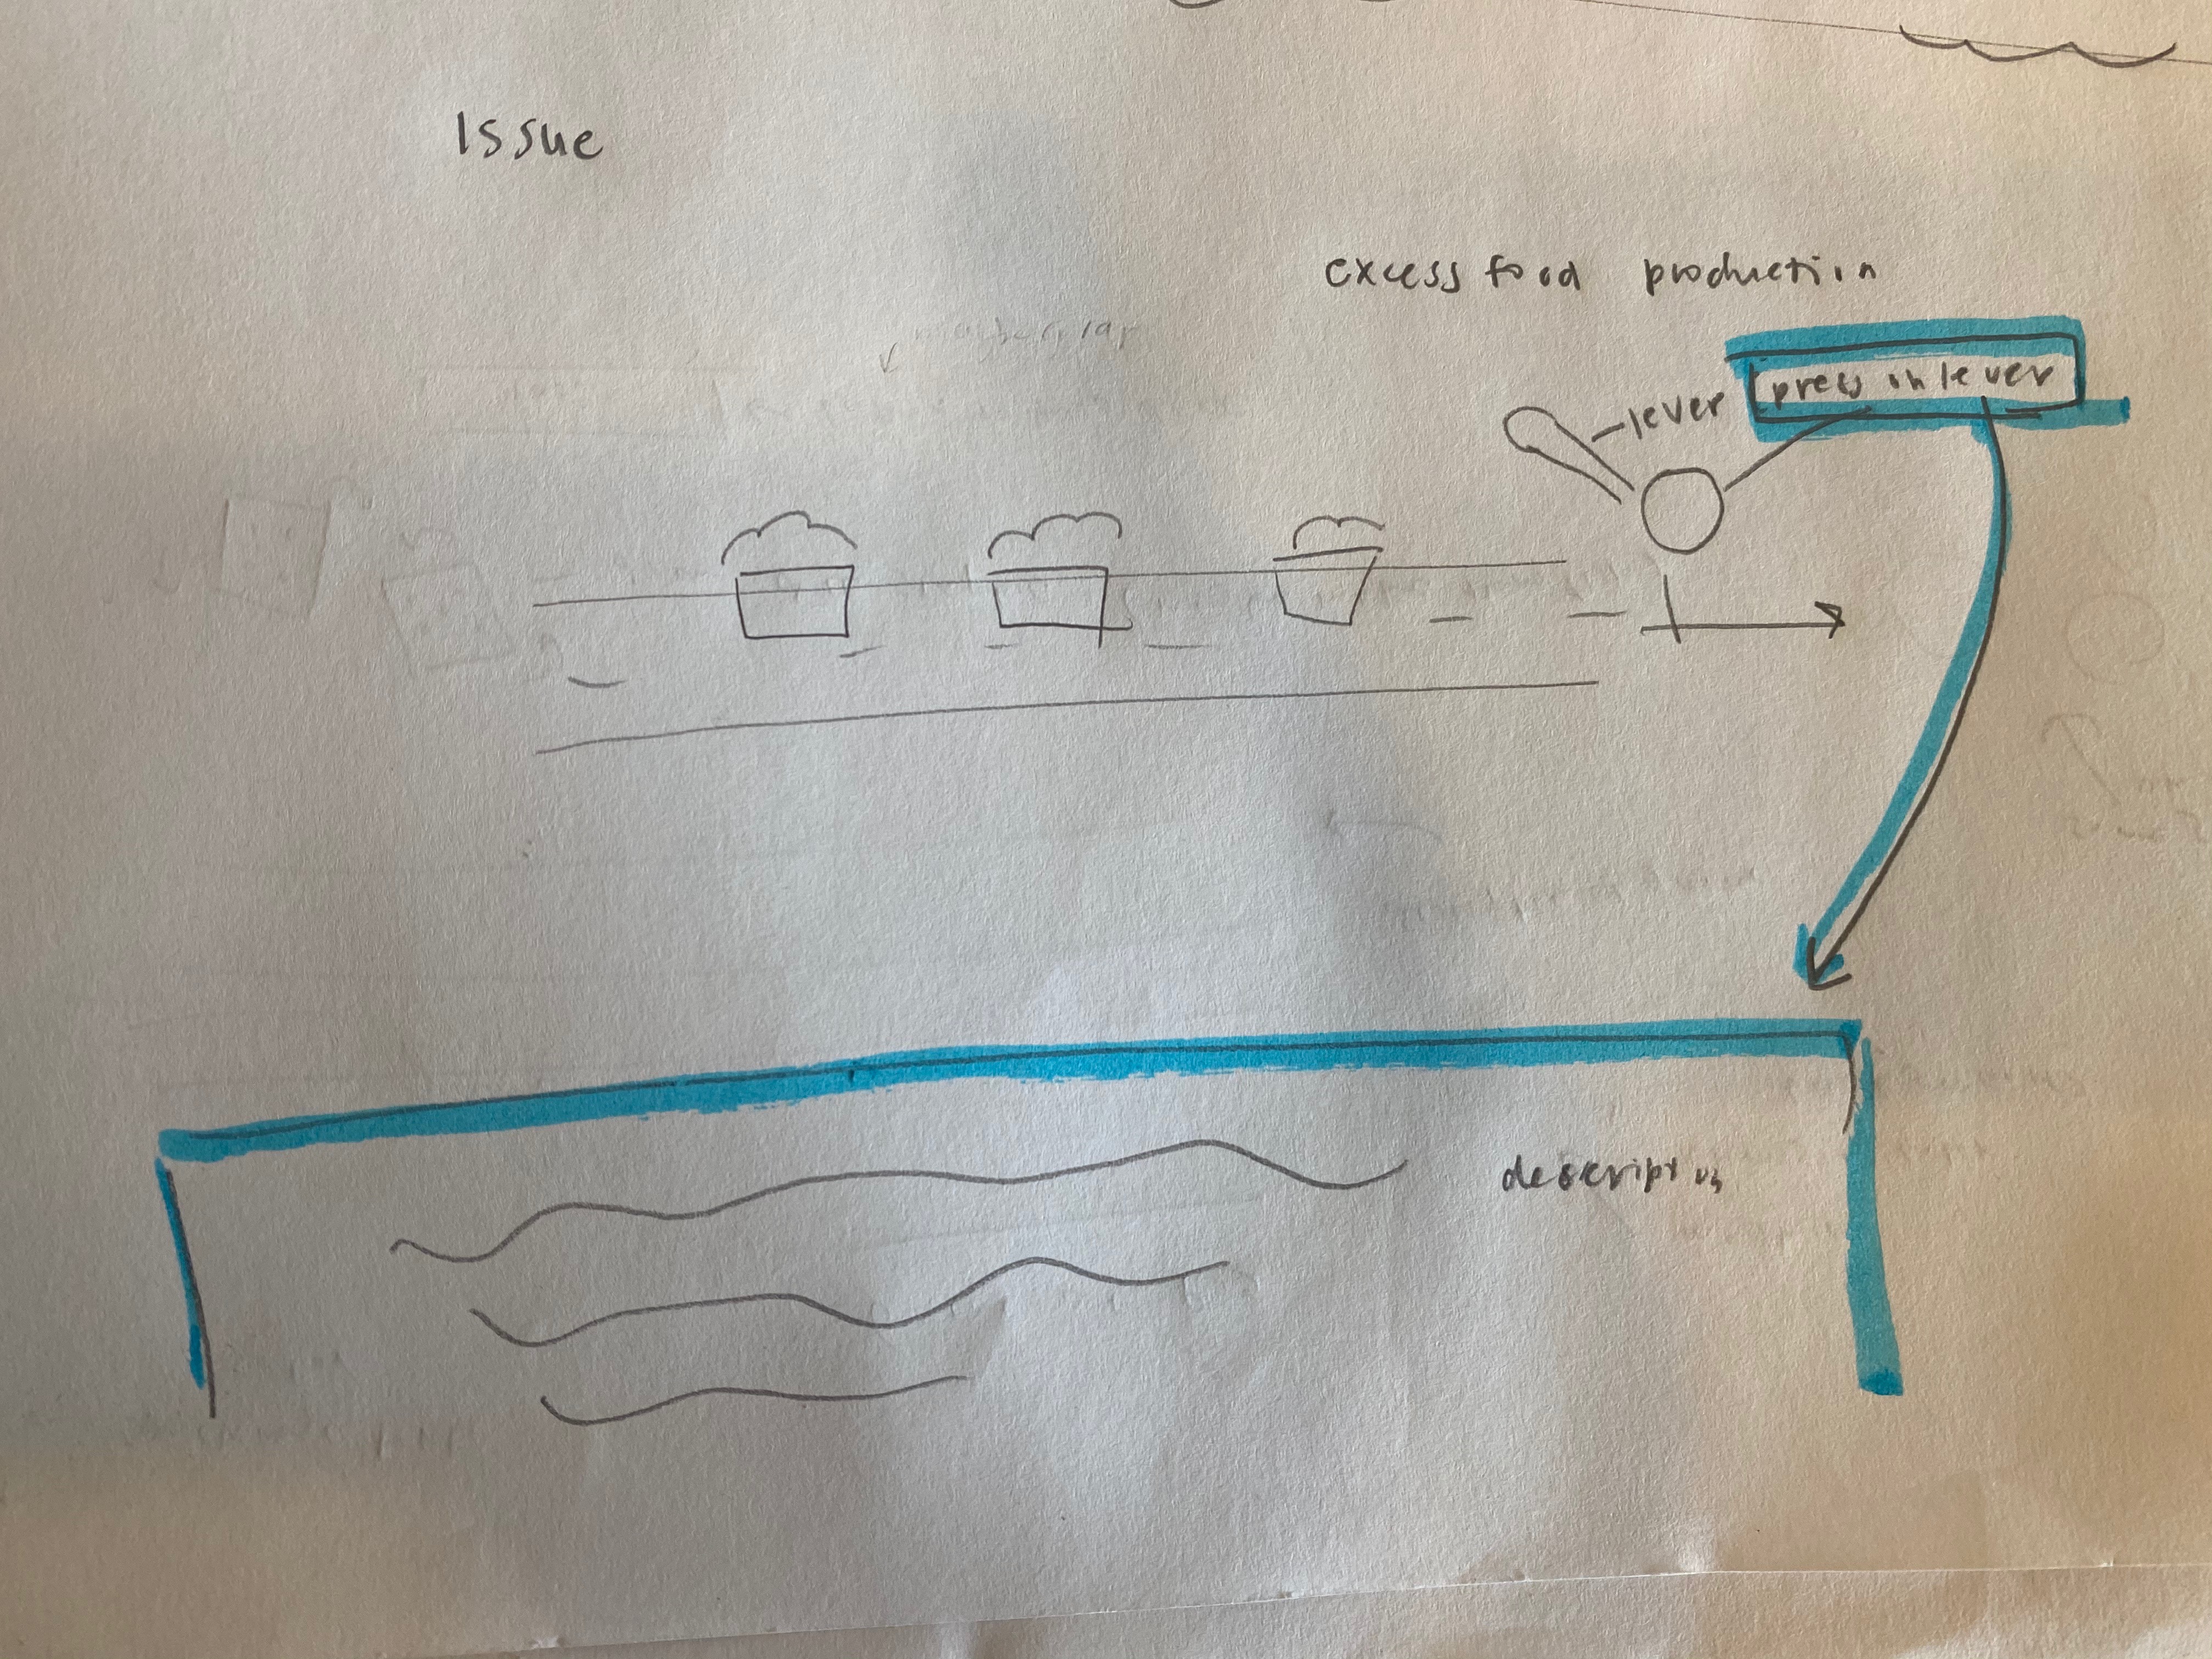 Issue
excess food production
press on lever
lever
description